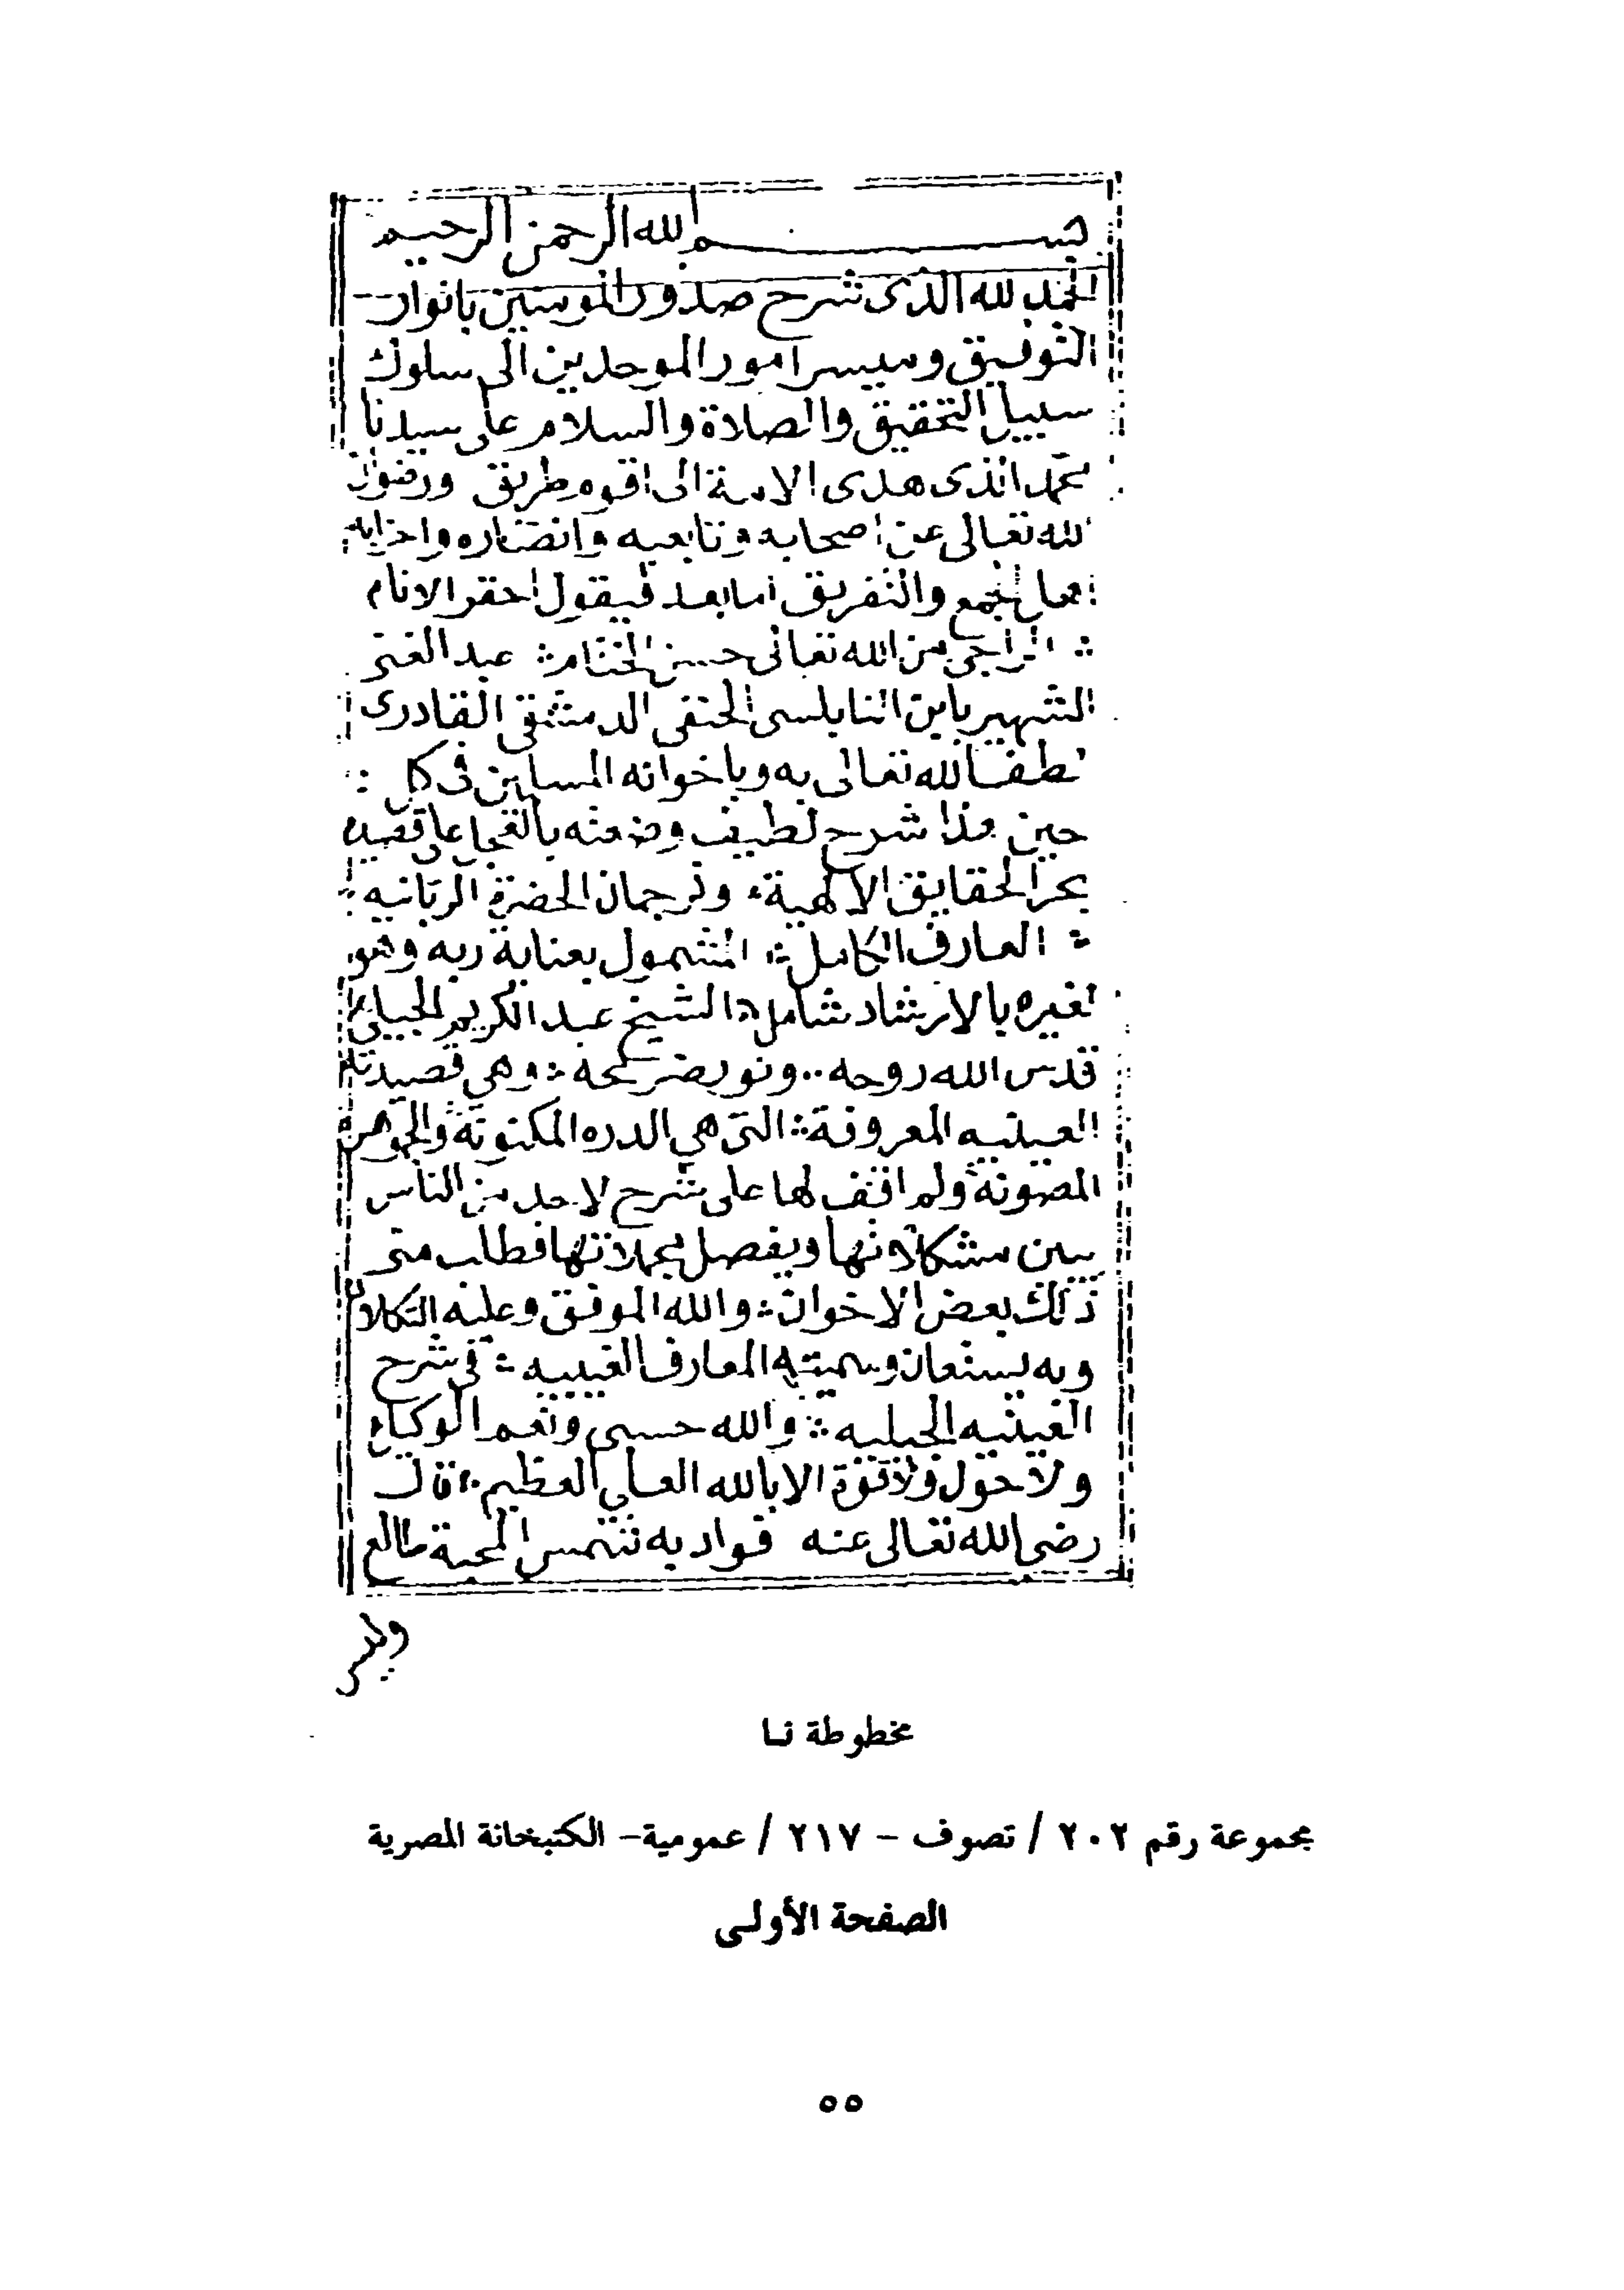 بســـــــم الله الرحمن الرحيم
الحمد لله الذى شرح صدور المومنين بانوار
التوفيق وميسر امور الموحدين الى سلوك
سبيل التحقيق والصلاة والسلام على سيدنا
محمد الذى هدى الامة الى اقوم طريق ورضوان
الله تعالى عن اصحابه وتابعيه وانصاره واحزابه
اهل الجمع والتفريق اما بعد فيقول احقر الانام
الراجى من الله تعالى حسن الختام عبد الغنى
الشهير بابن النابلسى الحنفى الدمشقى القادرى
لطف الله تعالى به وباخوانه المسلمين فى كل
حين هذا شرح لطيف وضعته بالعجل على قصيدة
بحر الحقايق الالهية وترجمان الحضرة الربانيه
العارف الكامل المشمول بعناية ربه وهو
لغيره بالارشاد شامل الشيخ عبد الكريم الجيلى
قدس الله روحه ونور ضريحه وهى قصيدته
العينيه المعروفة التى هى الدره المكنونة والجوهرة
المصونة ولم اقف لها على شرح لاحد من الناس
يبين مشكلاتها ويفصل مجملاتها فطلب منى
ذلك بعض الاخوان والله الموفق وعليه التكلان
وبه يستعان وسميته المعارف الغيبيه فى شرح
العينيه الجيليه والله حسبى ونعم الوكيل
ولا حول ولا قوة الا بالله العلى العظيم قال
رضى الله تعالى عنه فواد به شمس المحبة طالع
وليس
مخطوطة نـا
مجموعة رقم ٢٠٢ / تصوف – ٢١٧ / عمومية– الكتبخانة المصرية
الصفحة الأولى
٥٥